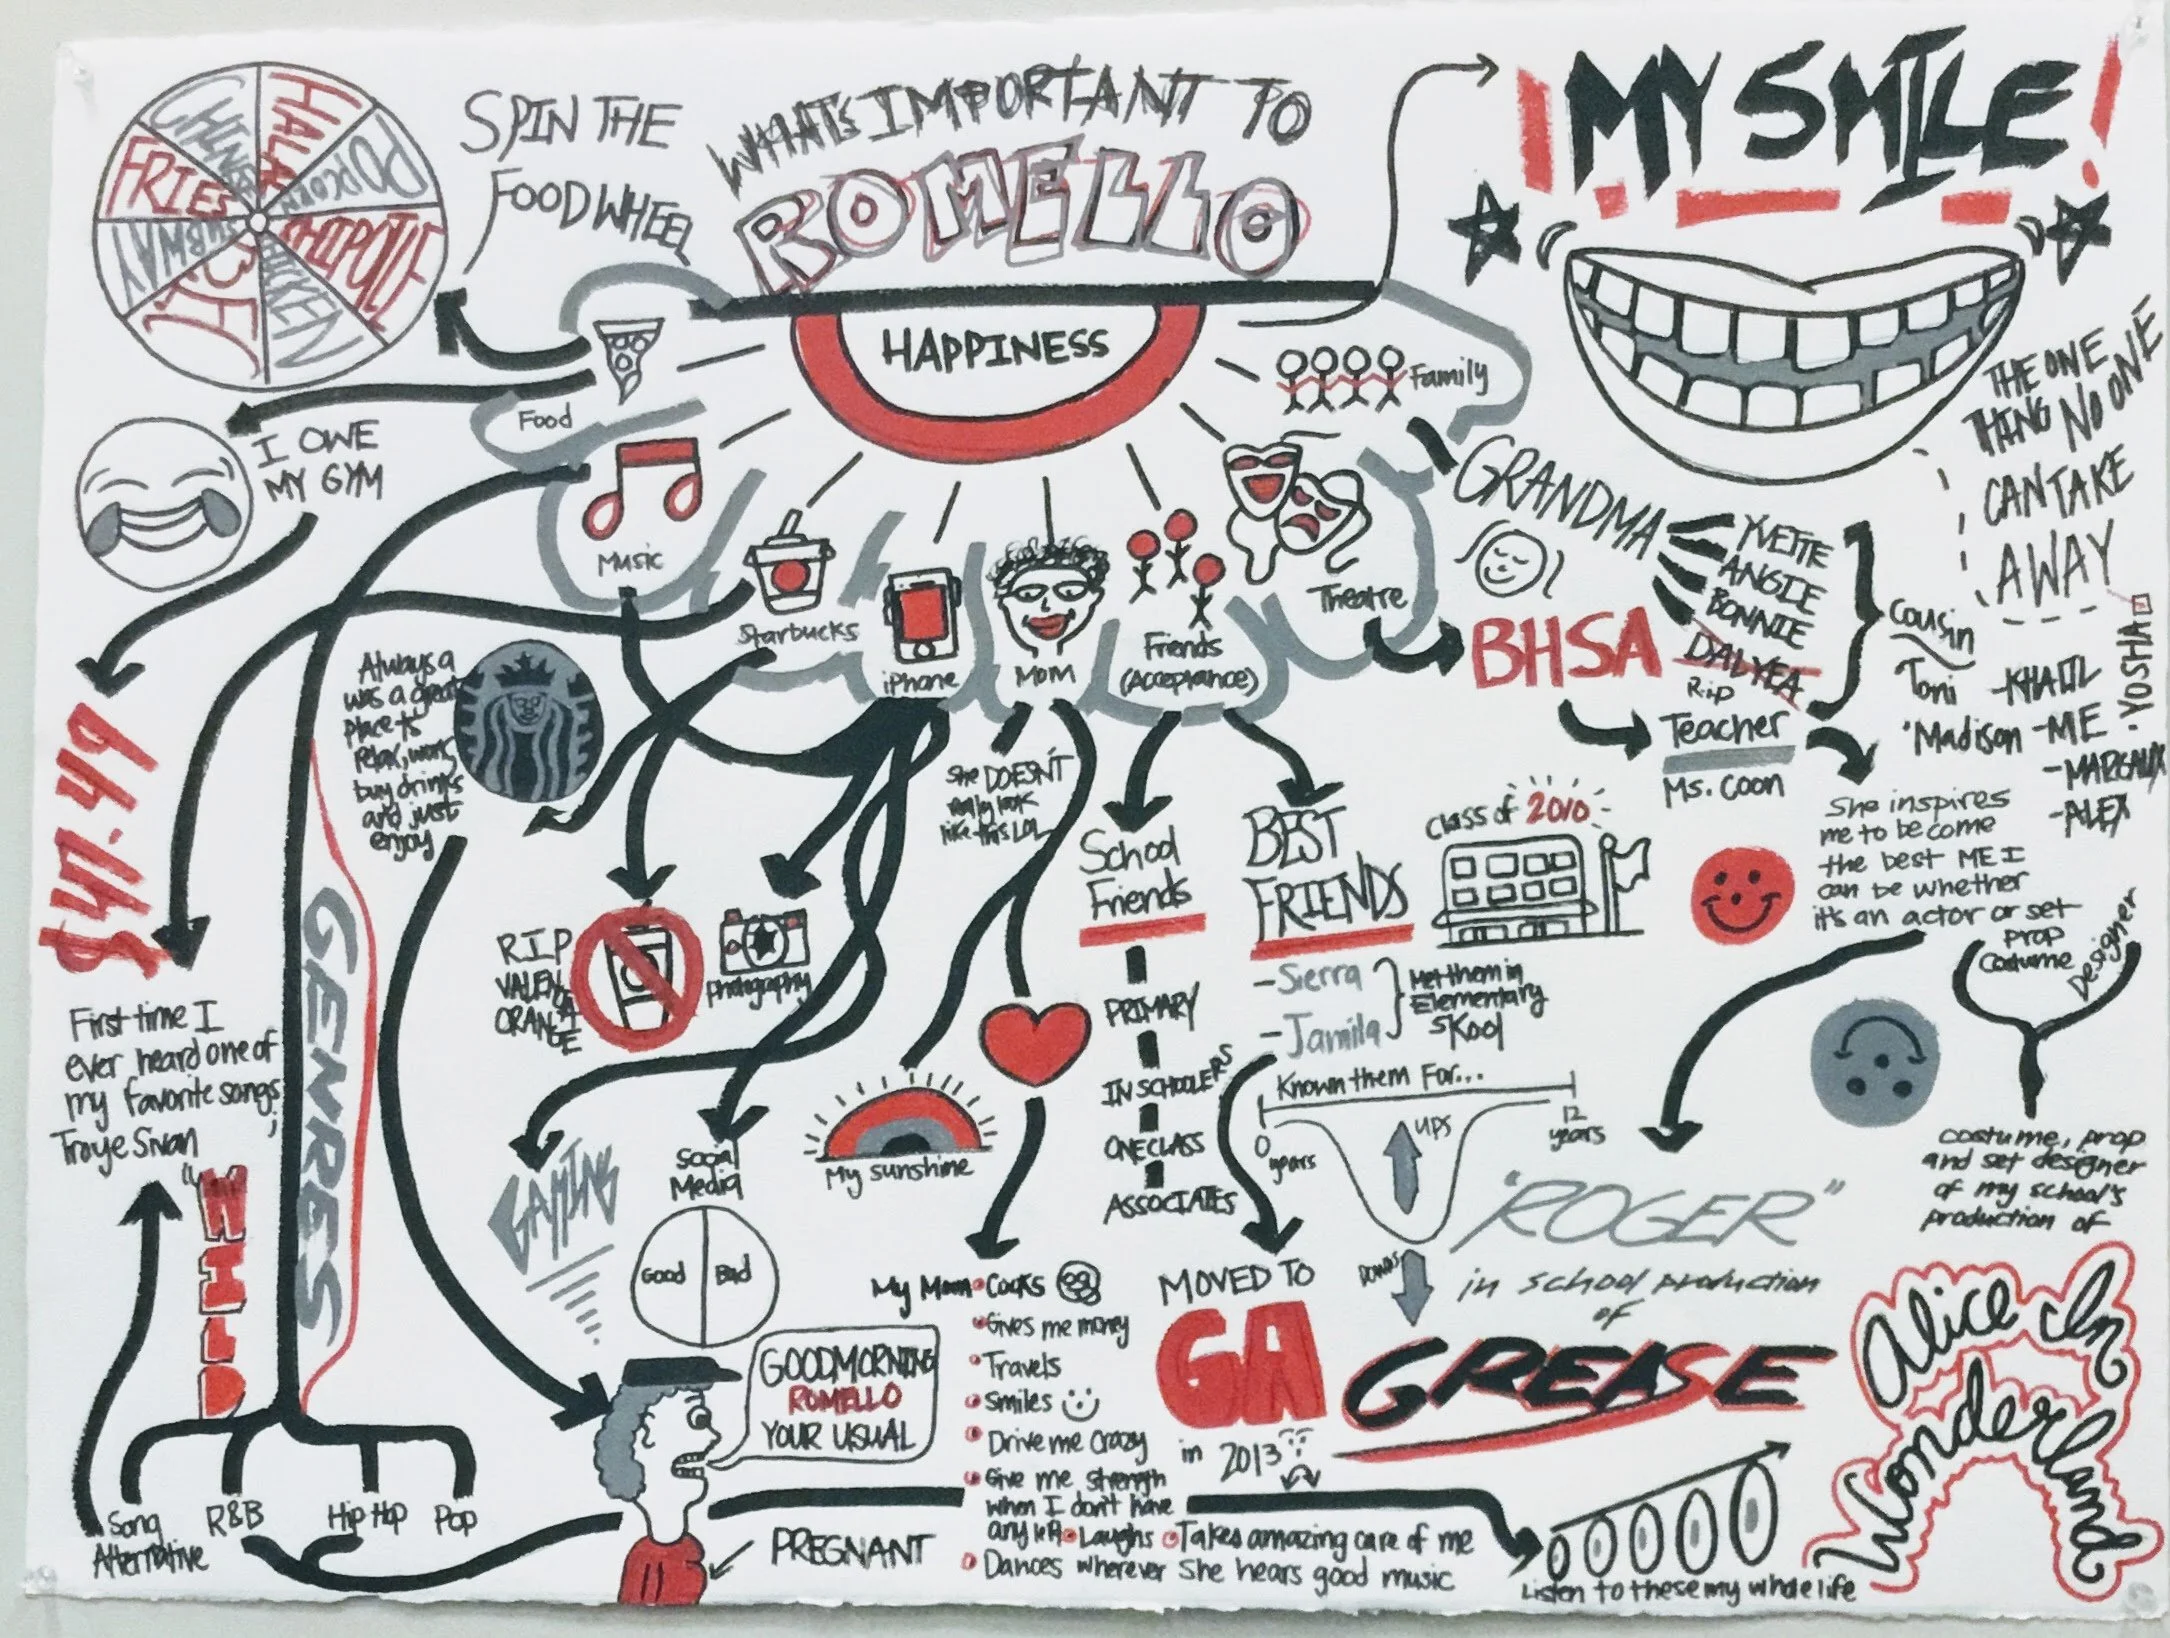 SPIN THE
FOOD WHEEL
HALAL
POPCORN
CHIPOTLE
CHICKEN
SUBWAY
FRIES
CHINESE
WHATS IMPORTANT TO
ROMELLO
HAPPINESS
MY SMILE!
THE ONE
THING NO ONE
CAN TAKE
AWAY
Food
I OWE
MY GYM
$47.49
Music
Starbucks
iPhone
Mom
Friends
(Acceptance)
Theatre
Family
GRANDMA
YVETTE
ANGIE
BONNIE
DALYEA
R.i.p
Cousin
Toni
Madison
-KHALIL
-ME
-MARGAUX
-ALEX
YOSHA
BHSA
Teacher
Ms. Coon
She inspires
me to become
the best ME I
can be whether
it's an actor or set
prop
Costume
Designer
costume, prop
and set designer
of my school's
production of
Alice In
Wonderland
"ROGER"
in school production
of
GREASE
Always a
was a great
place to
relax, work,
buy drinks
and just
enjoy
R.I.P
VALENCIA
ORANGE
photography
She DOESN'T
really look
like this LOL
School
Friends
PRIMARY
IN SCHOOLERS
ONE CLASS
ASSOCIATES
BEST
FRIENDS
-Sierra
-Jamila
Met them in
Elementary
Skool
Class of 2010
Known them For...
0
years
12
years
UPS
DOWNS
MOVED TO
GA
in 2013
GENRES
First time I
ever heard one of
my favorite songs,
Troye Sivan
"WILD
Song
Alternative
R&B
Hip Hop
Pop
GAMING
Social
Media
Good
Bad
My sunshine
GOODMORNING
ROMELLO
YOUR USUAL
PREGNANT
My Mom
Cooks
Gives me money
Travels
Smiles
Drive me crazy
Give me strength
when I don't have
any
Laughs
Takes amazing care of me
Dances wherever she hears good music
Listen to these my whole life